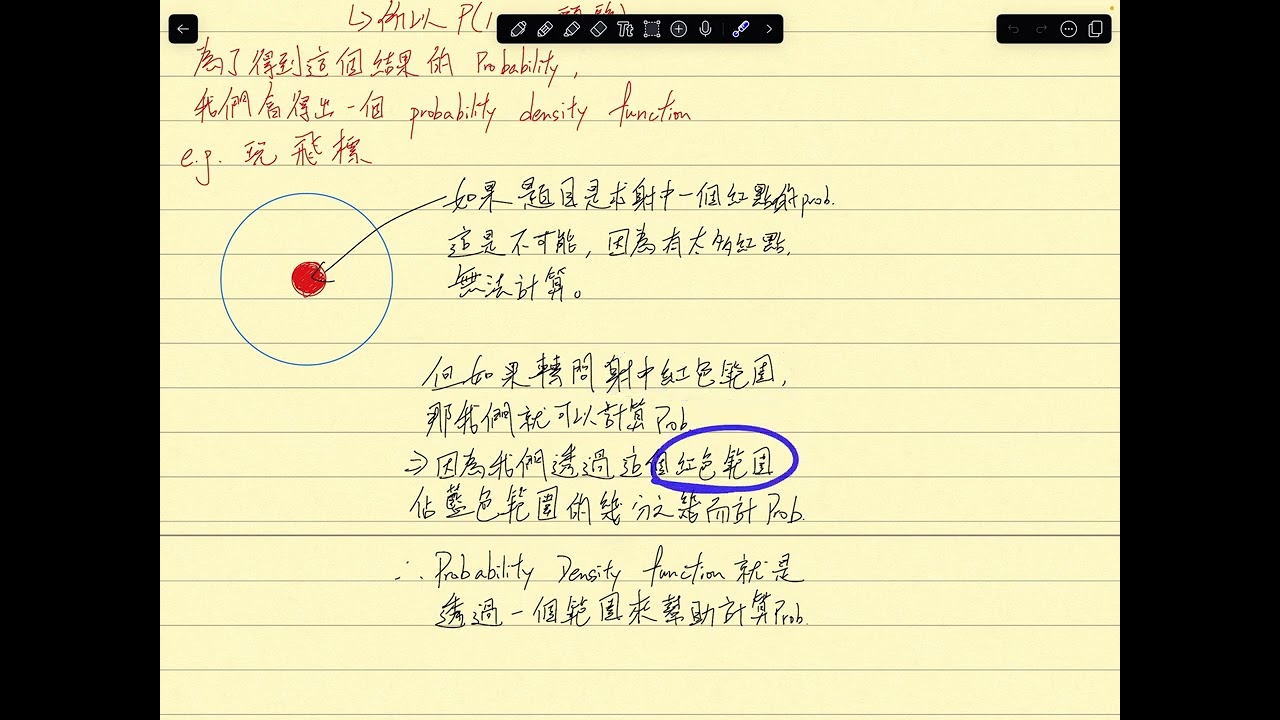 ↳所以 P(1
為了得到這個結果的 Probability,
我們會得出一個 probability density function
e.g. 玩飛標
如果題目是求射中一個紅點的prob.
這是不可能,因為有太多紅點,
無法計算。
但如果轉問射中紅色範圍,
那我們就可以計算Prob.
⇒因為我們透過這個紅色範圍
佔藍色範圍的幾分之幾而計Prob.
∴ Probability Density function就是
透過一個範圍來幫助計算Prob.